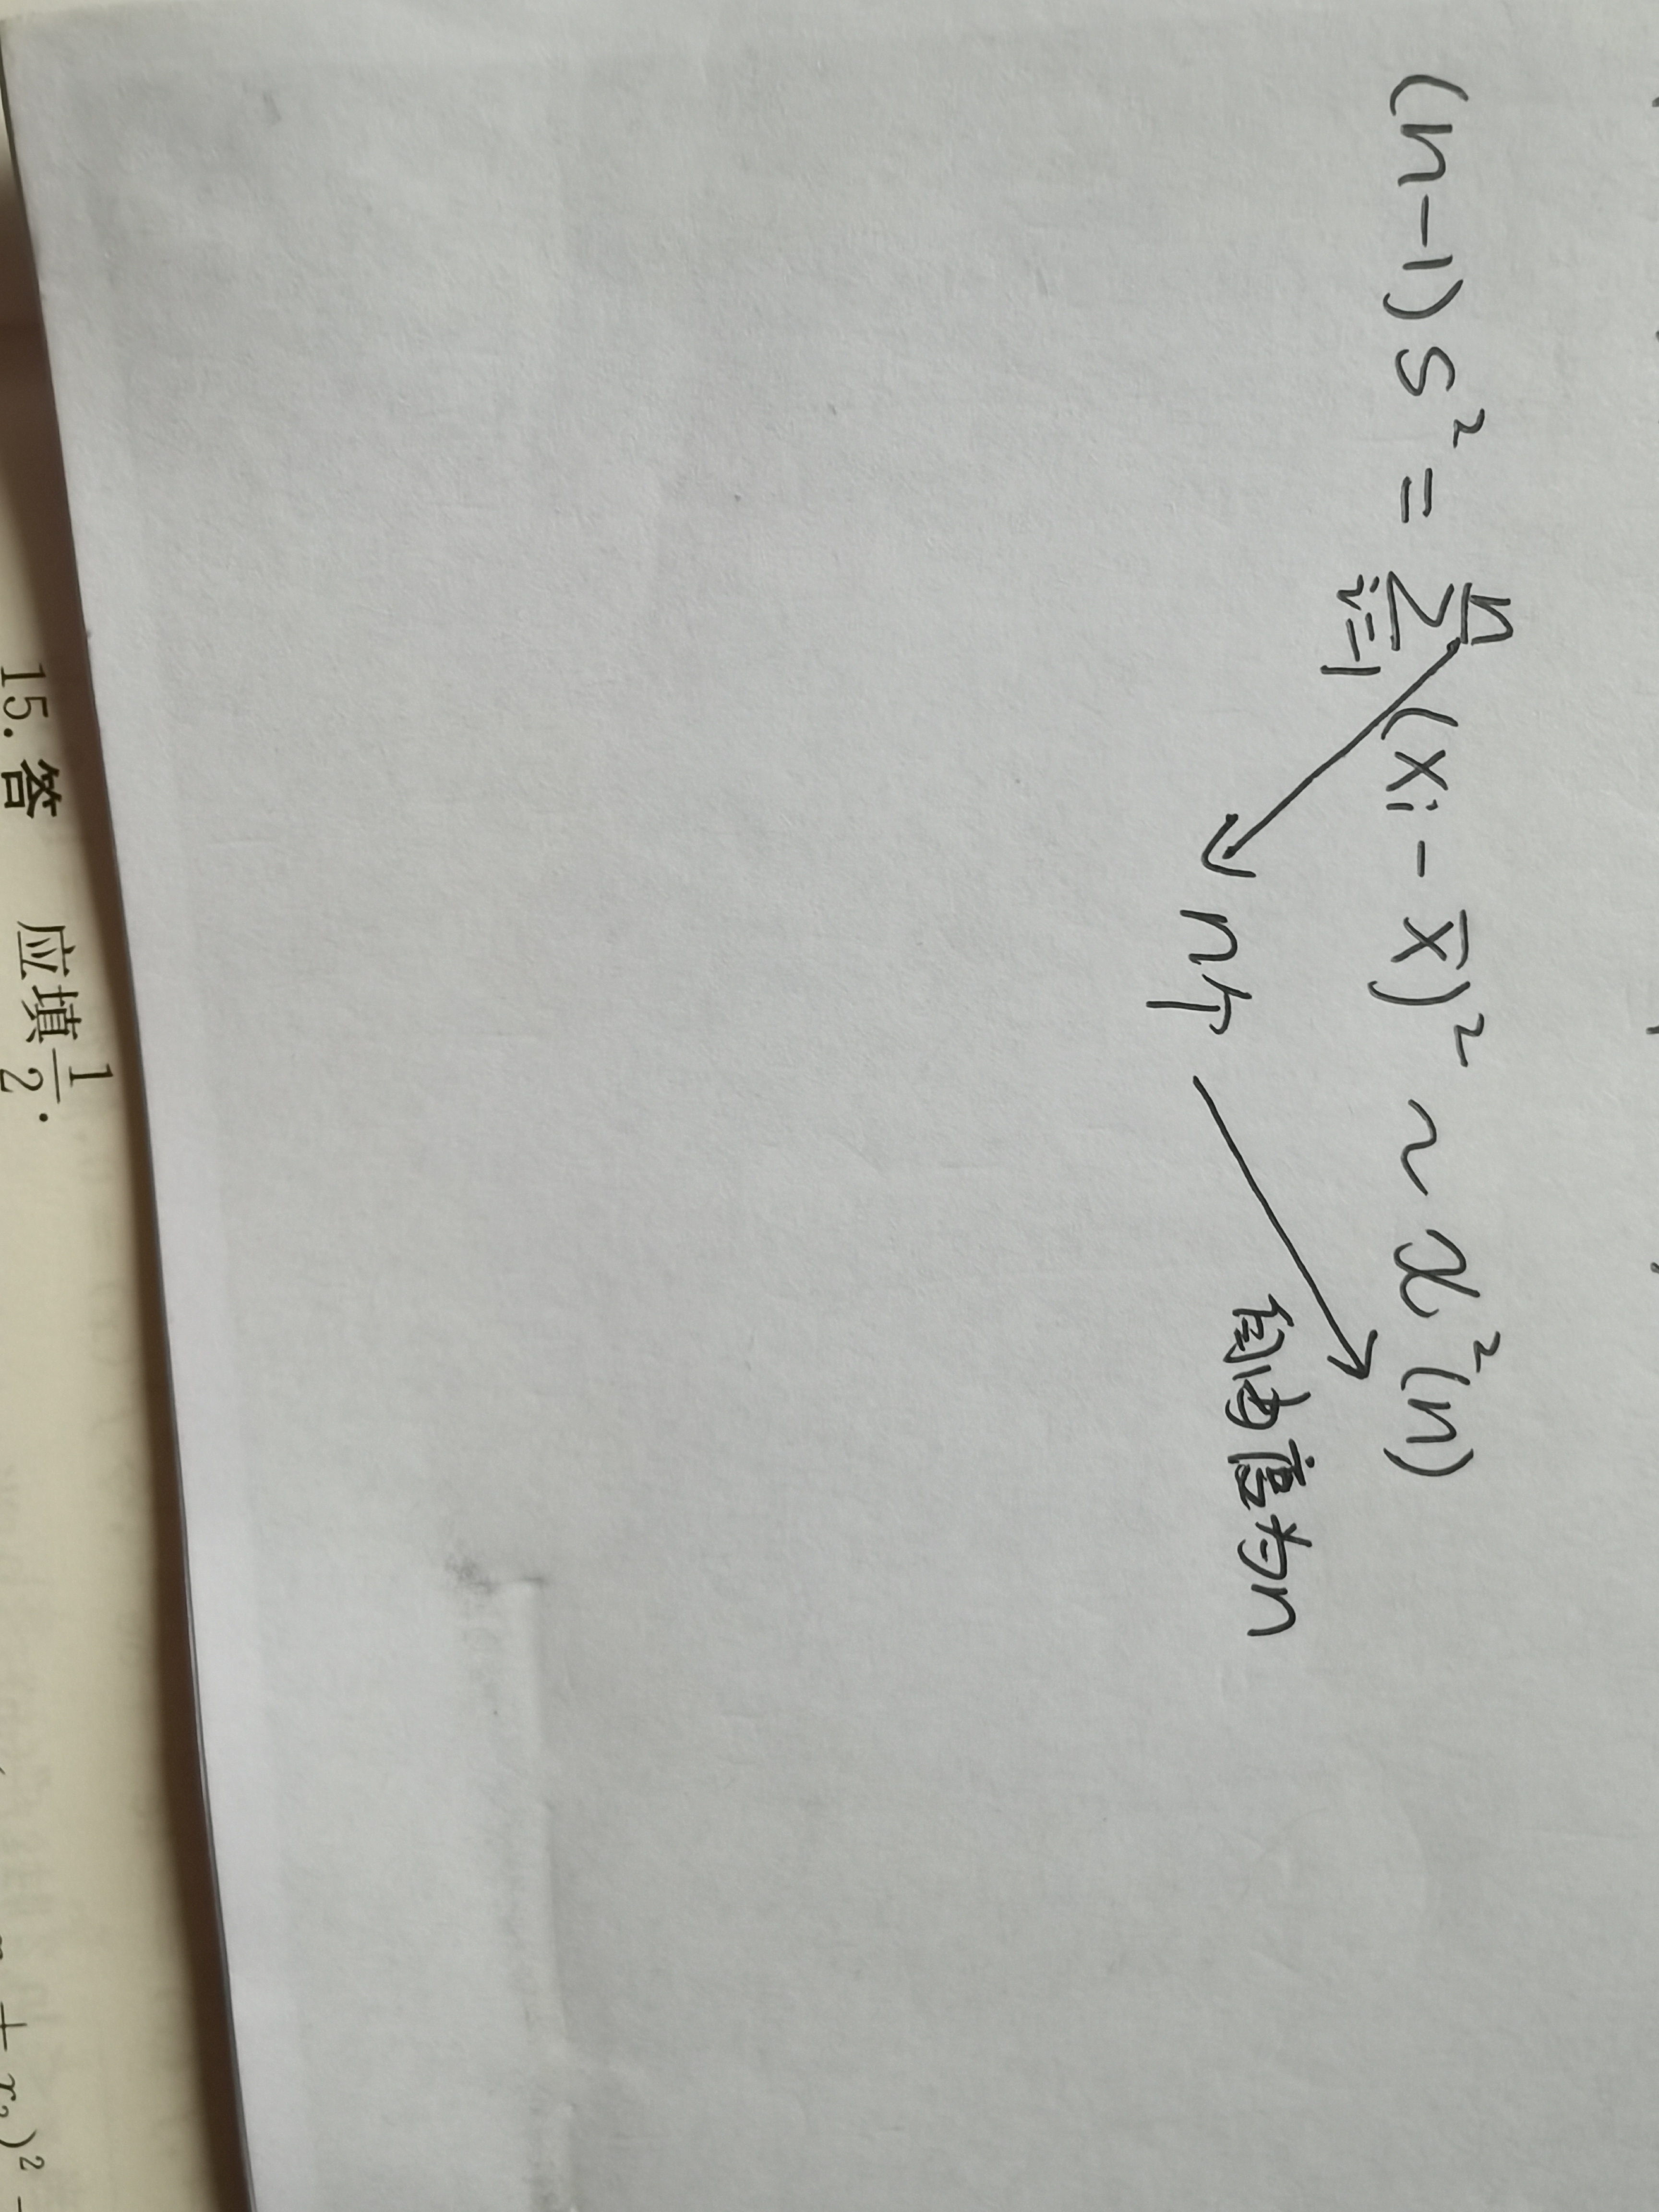 (n-1)S² = ∑ⁿᵢ₌₁ (xᵢ - x̄)² ~ χ²(n)
n个
自由度为n
15. 答 应填 1/2.
+ x₂)² -